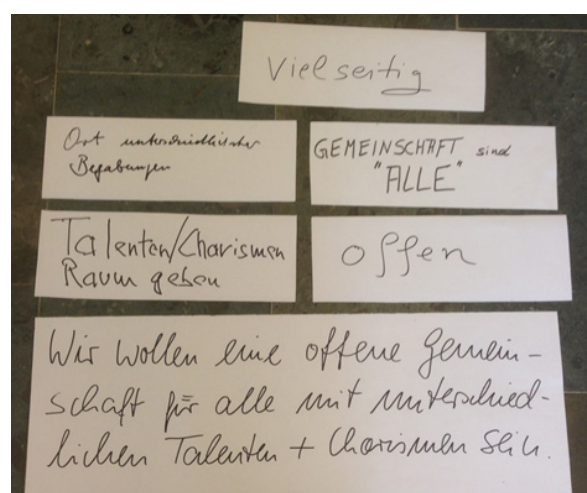 Vielseitig
Ort unterschiedlicher
Begabungen
GEMEINSCHAFT sind
"ALLE"
Talenten/Charismen
Raum geben
offen
Wir wollen eine offene Gemein-
schaft für alle mit unterschied-
lichen Talenten + Charismen sein.